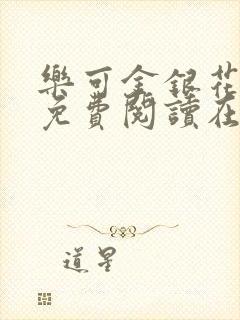 樂可金銀花
免費閱讀在
道星